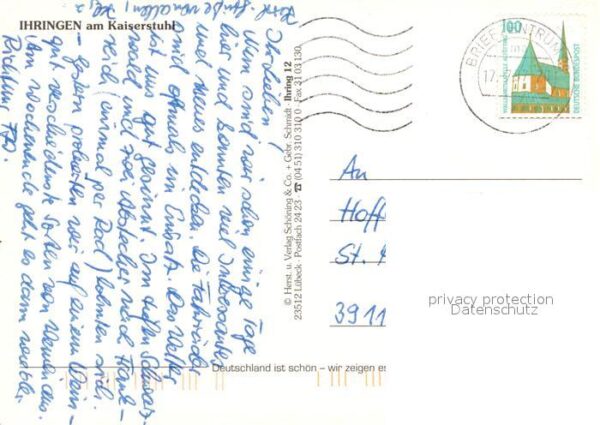 IHRINGEN am Kaiserstuhl
Ihr Lieben!
Nun sind wir schon einige Tage
hier und konnten viel Interessantes
und neues entdecken. Die Fahrräder
sind oftmals im Einsatz. Das Wetter
ist uns gut gesinnt. Im hohen Schwarz-
wald und zwei Abstecher nach Frank-
reich (einmal per Rad) lohnten sich.
Gestern probierten wir auf einem Wein-
gut verschiedenste Sorten von Weinen aus.
Am Wochenende geht es dann weiter
Richtung
© Herst. u. Verlag Schöning & Co. + Gebr. Schmidt · Ihring 12
23512 Lübeck · Postfach 24 23 · ☎ (04 51) 310 310 0 · Fax 31 03 130
BRIEFZENTRUM
17.
100
DEUTSCHE BUNDESPOST
An
Hoff
St.
3911
privacy protection
Datenschutz
Deutschland ist schön – wir zeigen es